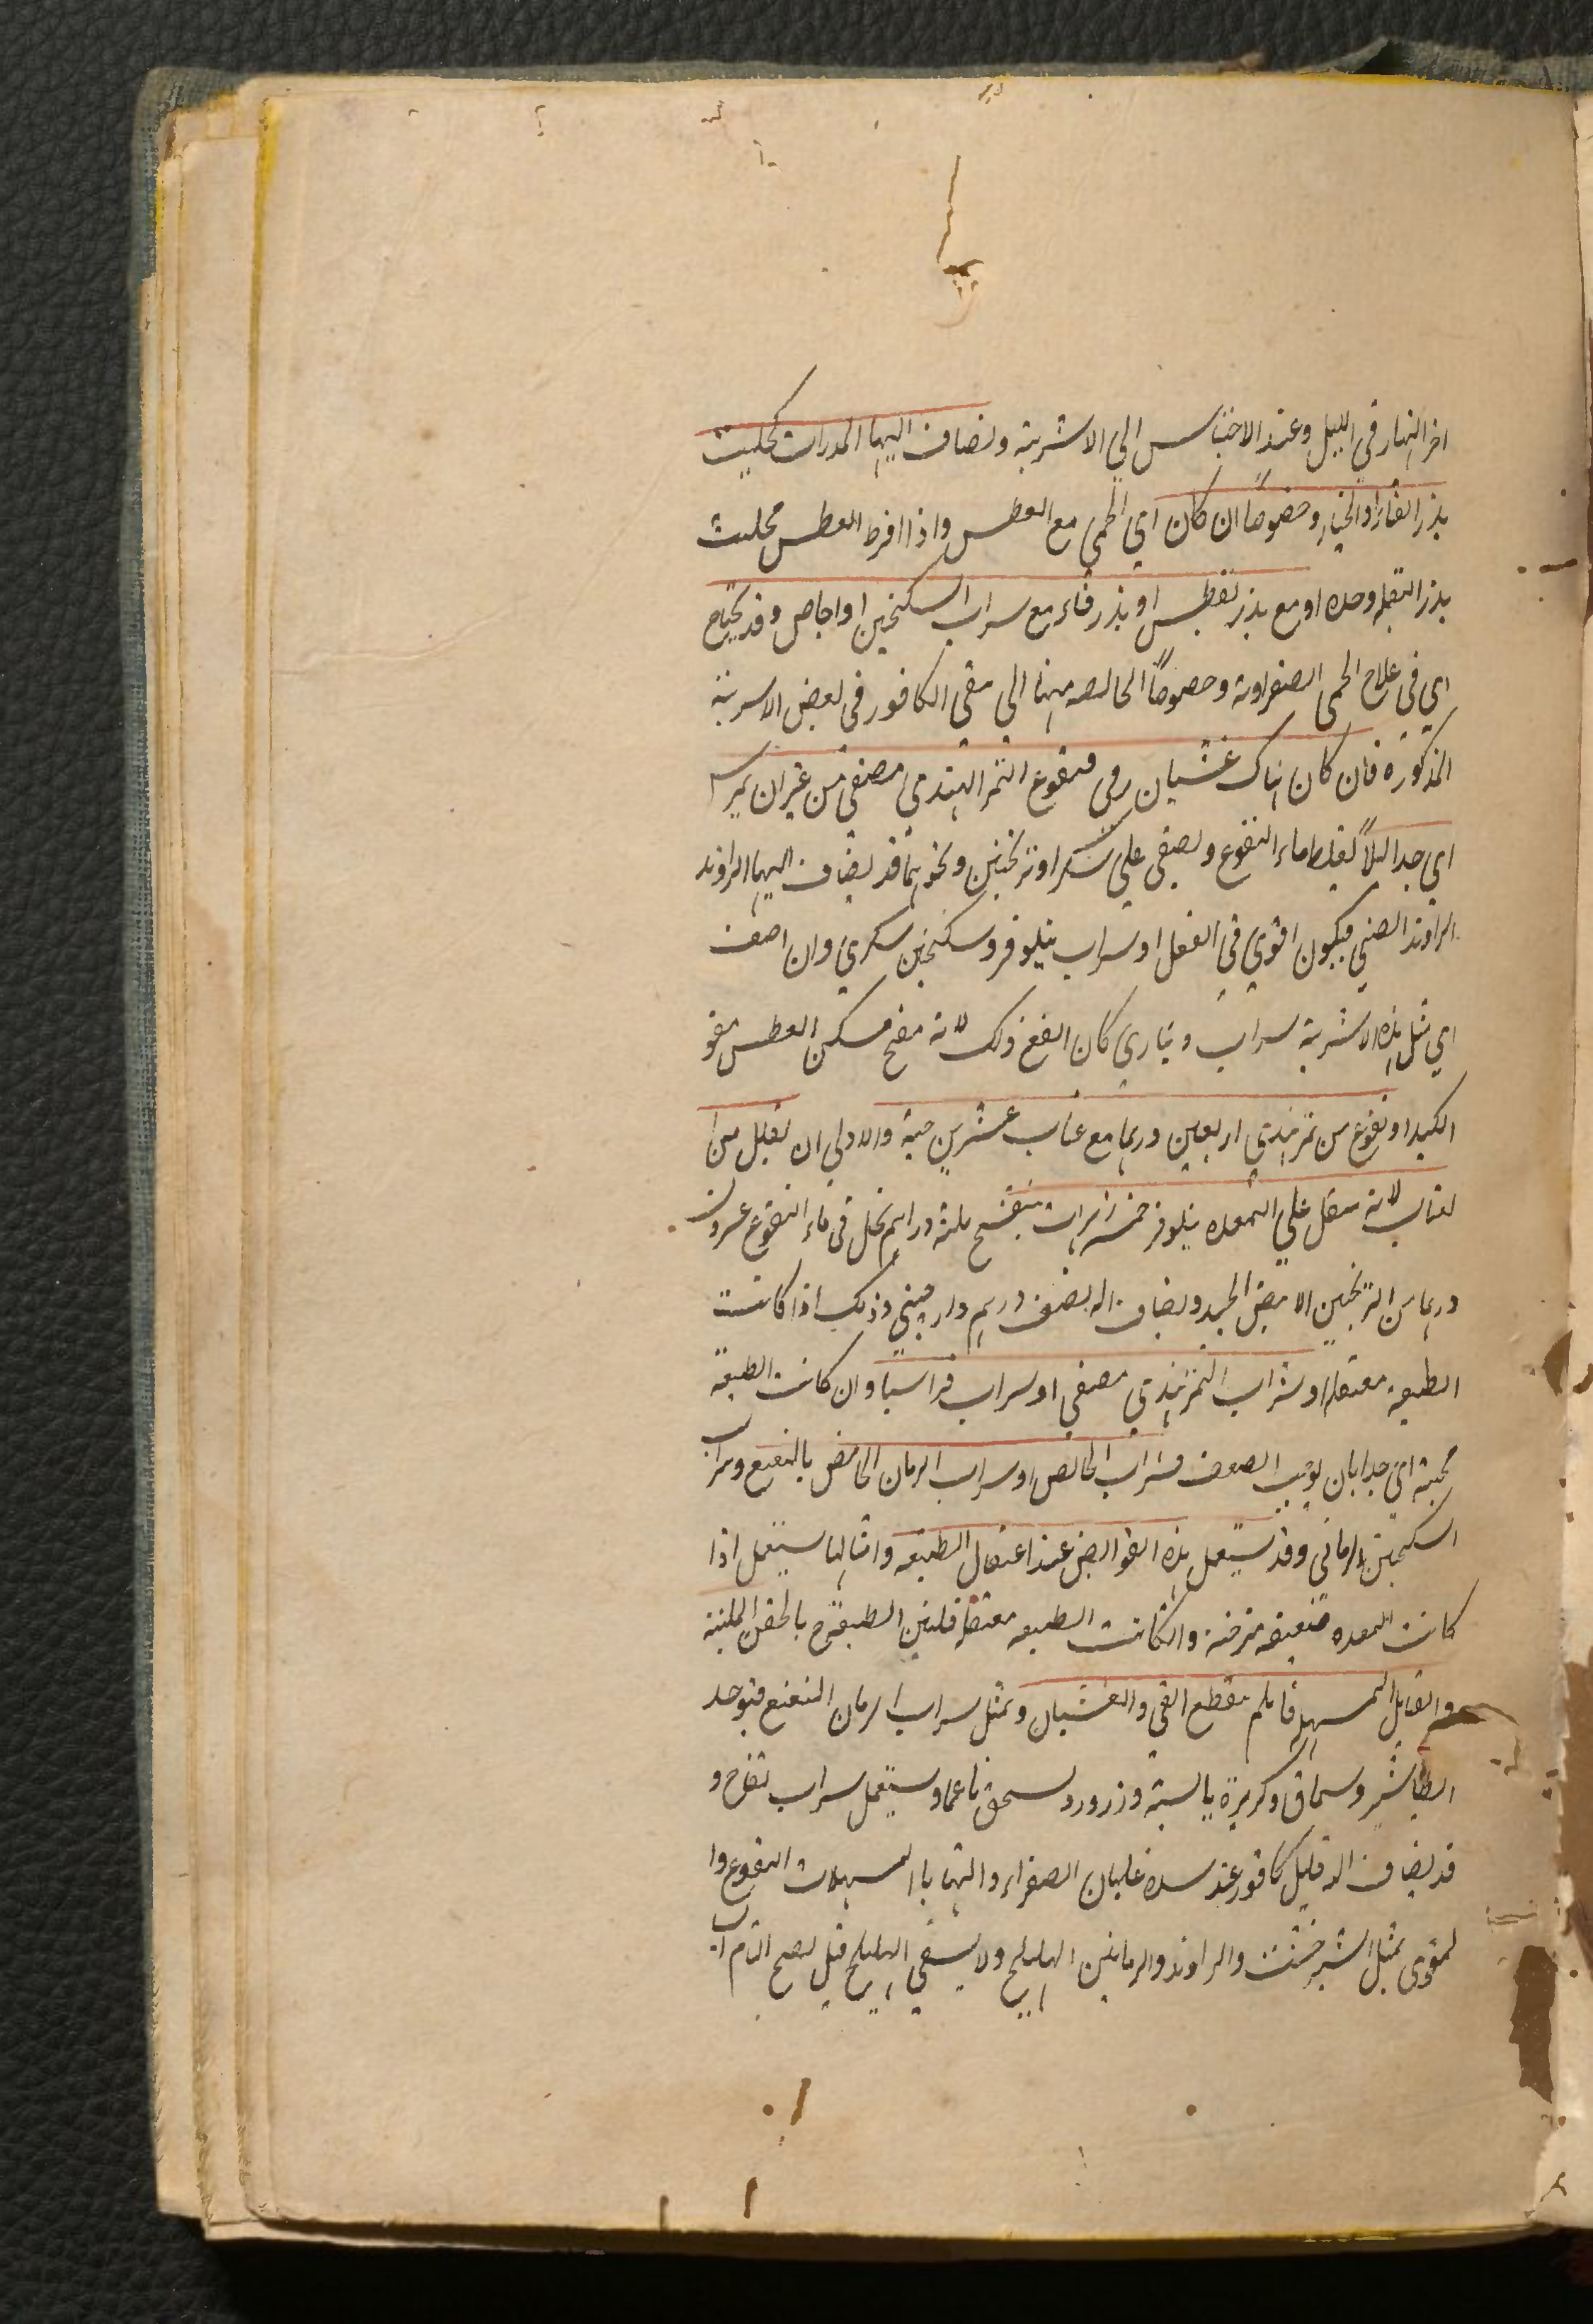 اخر النهار في الليل وعند الاحتباس الي الاشربة وتضاف اليها المدرات كحليت
بذر القثاء او الخيار وخصوصًا ان كان اي الحمى مع العطس واذا افرط العطس محليت
بذر البقله وحده او مع بذر بقطس او بذر قثاء مع سراب السكنجبين او اجاص وقد يحتاج
اي في علاج الحمى الصفراوية وخصوصًا الخالصه منها الي سقى الكافور في بعض الاسربة
المذكورة فان كان هناك غشيان رمى فنقوع التمر الهندي مصفى من غير ان يمرس
اي جدا لئلا يغلظ ماء النقوع ويصفى علي سكر او ترنجبين ونحوهما قد يضاف اليها الراوند
الراوند الصيني فيكون اقوي في الفعل او سراب نيلوفر وسكنجبين سكري وان اضيف
اي مثل هذه الاشربة سراب ديناري كان انفع وذلك لانه مفتح مسكن العطس مقو
الكبد او نقوع من تمر هندي اربعين درهما مع عناب عشرين حبة والاولي ان يقلل من ا
لعناب لانه يثقل علي المعده نيلوفر خمس زهرات بنفسج ثلثة دراهم يحل في ماء النقوع عشرون
درهما من الترنجبين الابيض الجيد ويضاف اليه نصف درهم دارچيني وذلك اذا كانت
الطبيعه معتقله او شراب التمر هندي مصفى او سراب قراسيا وان كانت الطبيعة
مجيبة اي جدا بان يوجب الضعف فشراب الحالص او سراب الرمان الحامض بالنعنع وسراب
السكنجبين الرماني وقد يستعمل هذه القوابض عند اعتقال الطبيعه وامثالها يستعمل اذا
كانت المعده ضعيفه مترخية وان كانت الطبيعه معتقلة فلين الطبيعة ح بالحقن الملينة
والفتايل المسهلة فان لم ينقطع القي والغشيان وبمثل سراب الرمان النعنع فيوخذ
الطباشير وسماق وكزبرة يابسة وزرورد يسحق ناعما ويستعمل سراب تفاح و
قد يضاف اليه قليل كافور عند سدة غليان الصفراء والتهابها المسهلات النقوع وا
لمقوى بمثل الشيرخشت والراوند والرمانين الهليلج ولا يسقى الهليلج قبل نضج التام